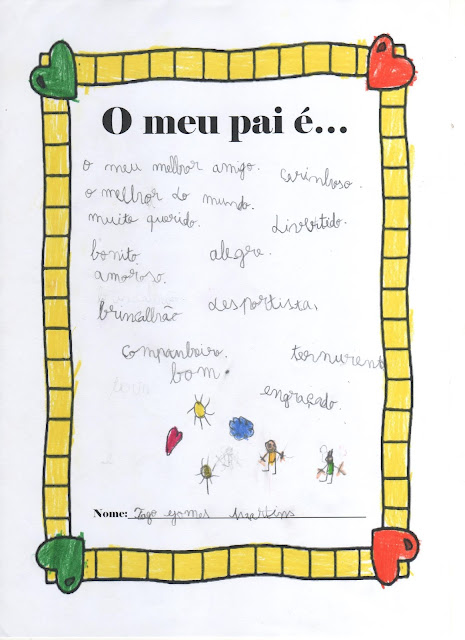 O meu pai é...
o meu melhor amigo. carinhoso.
o melhor do mundo.
muito querido. divertido.
bonito alegre.
amoroso.
brincalhão desportista,
companheiro. ternurent
bom.
engraçado.
Nome: Gomes Martins